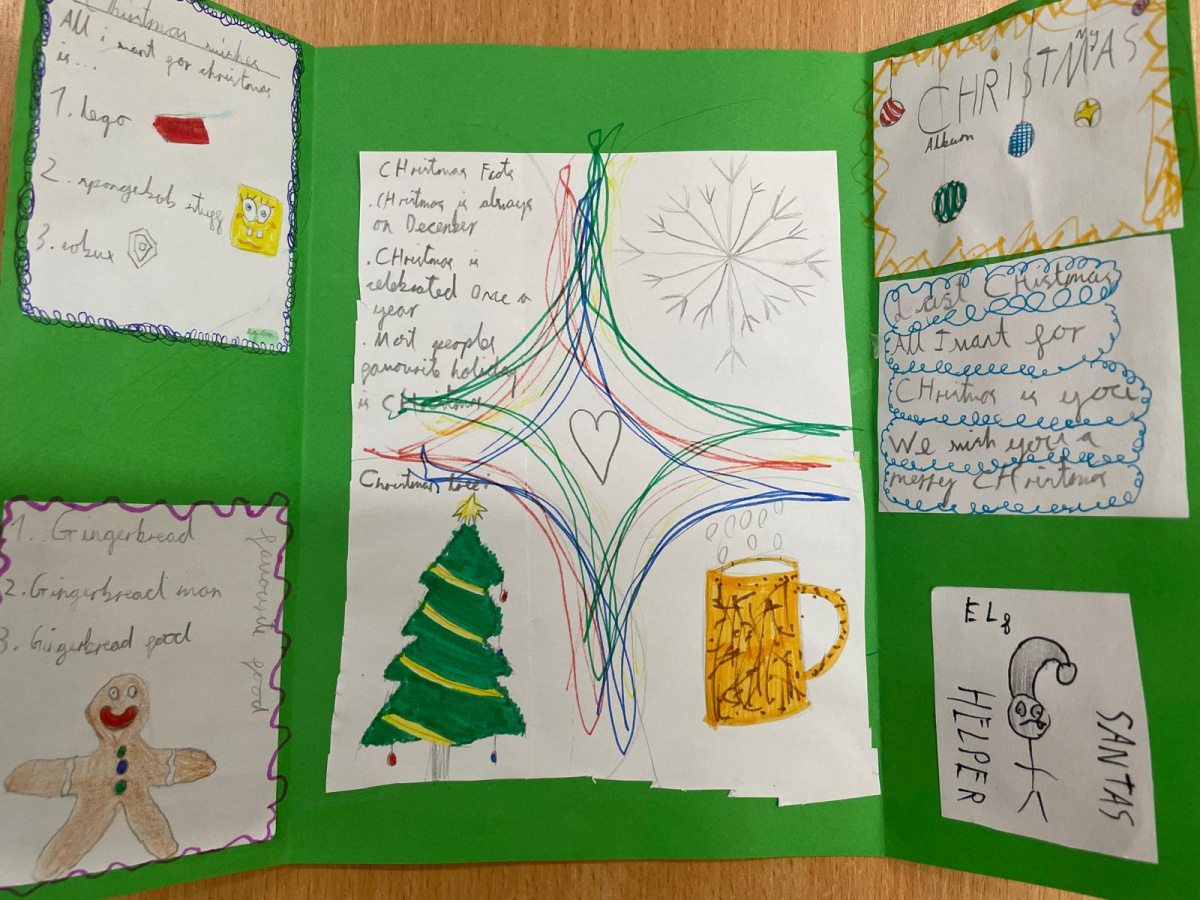 Christmas wishes
All i want for christmas
is...
1. Lego
2. spongebob stuff
3. robux
1. Gingerbread
2. Gingerbread man
3. Gingerbread food
favourite food
CHristmas Facts
. CHristmas is always
on December
. CHristmas is
celebrated Once a
year
. Most peoples
favourite holiday
is CHristmas
Christmas tree:
My
CHRISTMAS
Album
Last CHristmas
All I want for
CHristmas is you
We wish you a
merry CHristmas
ELf
SANTAS
HELPER